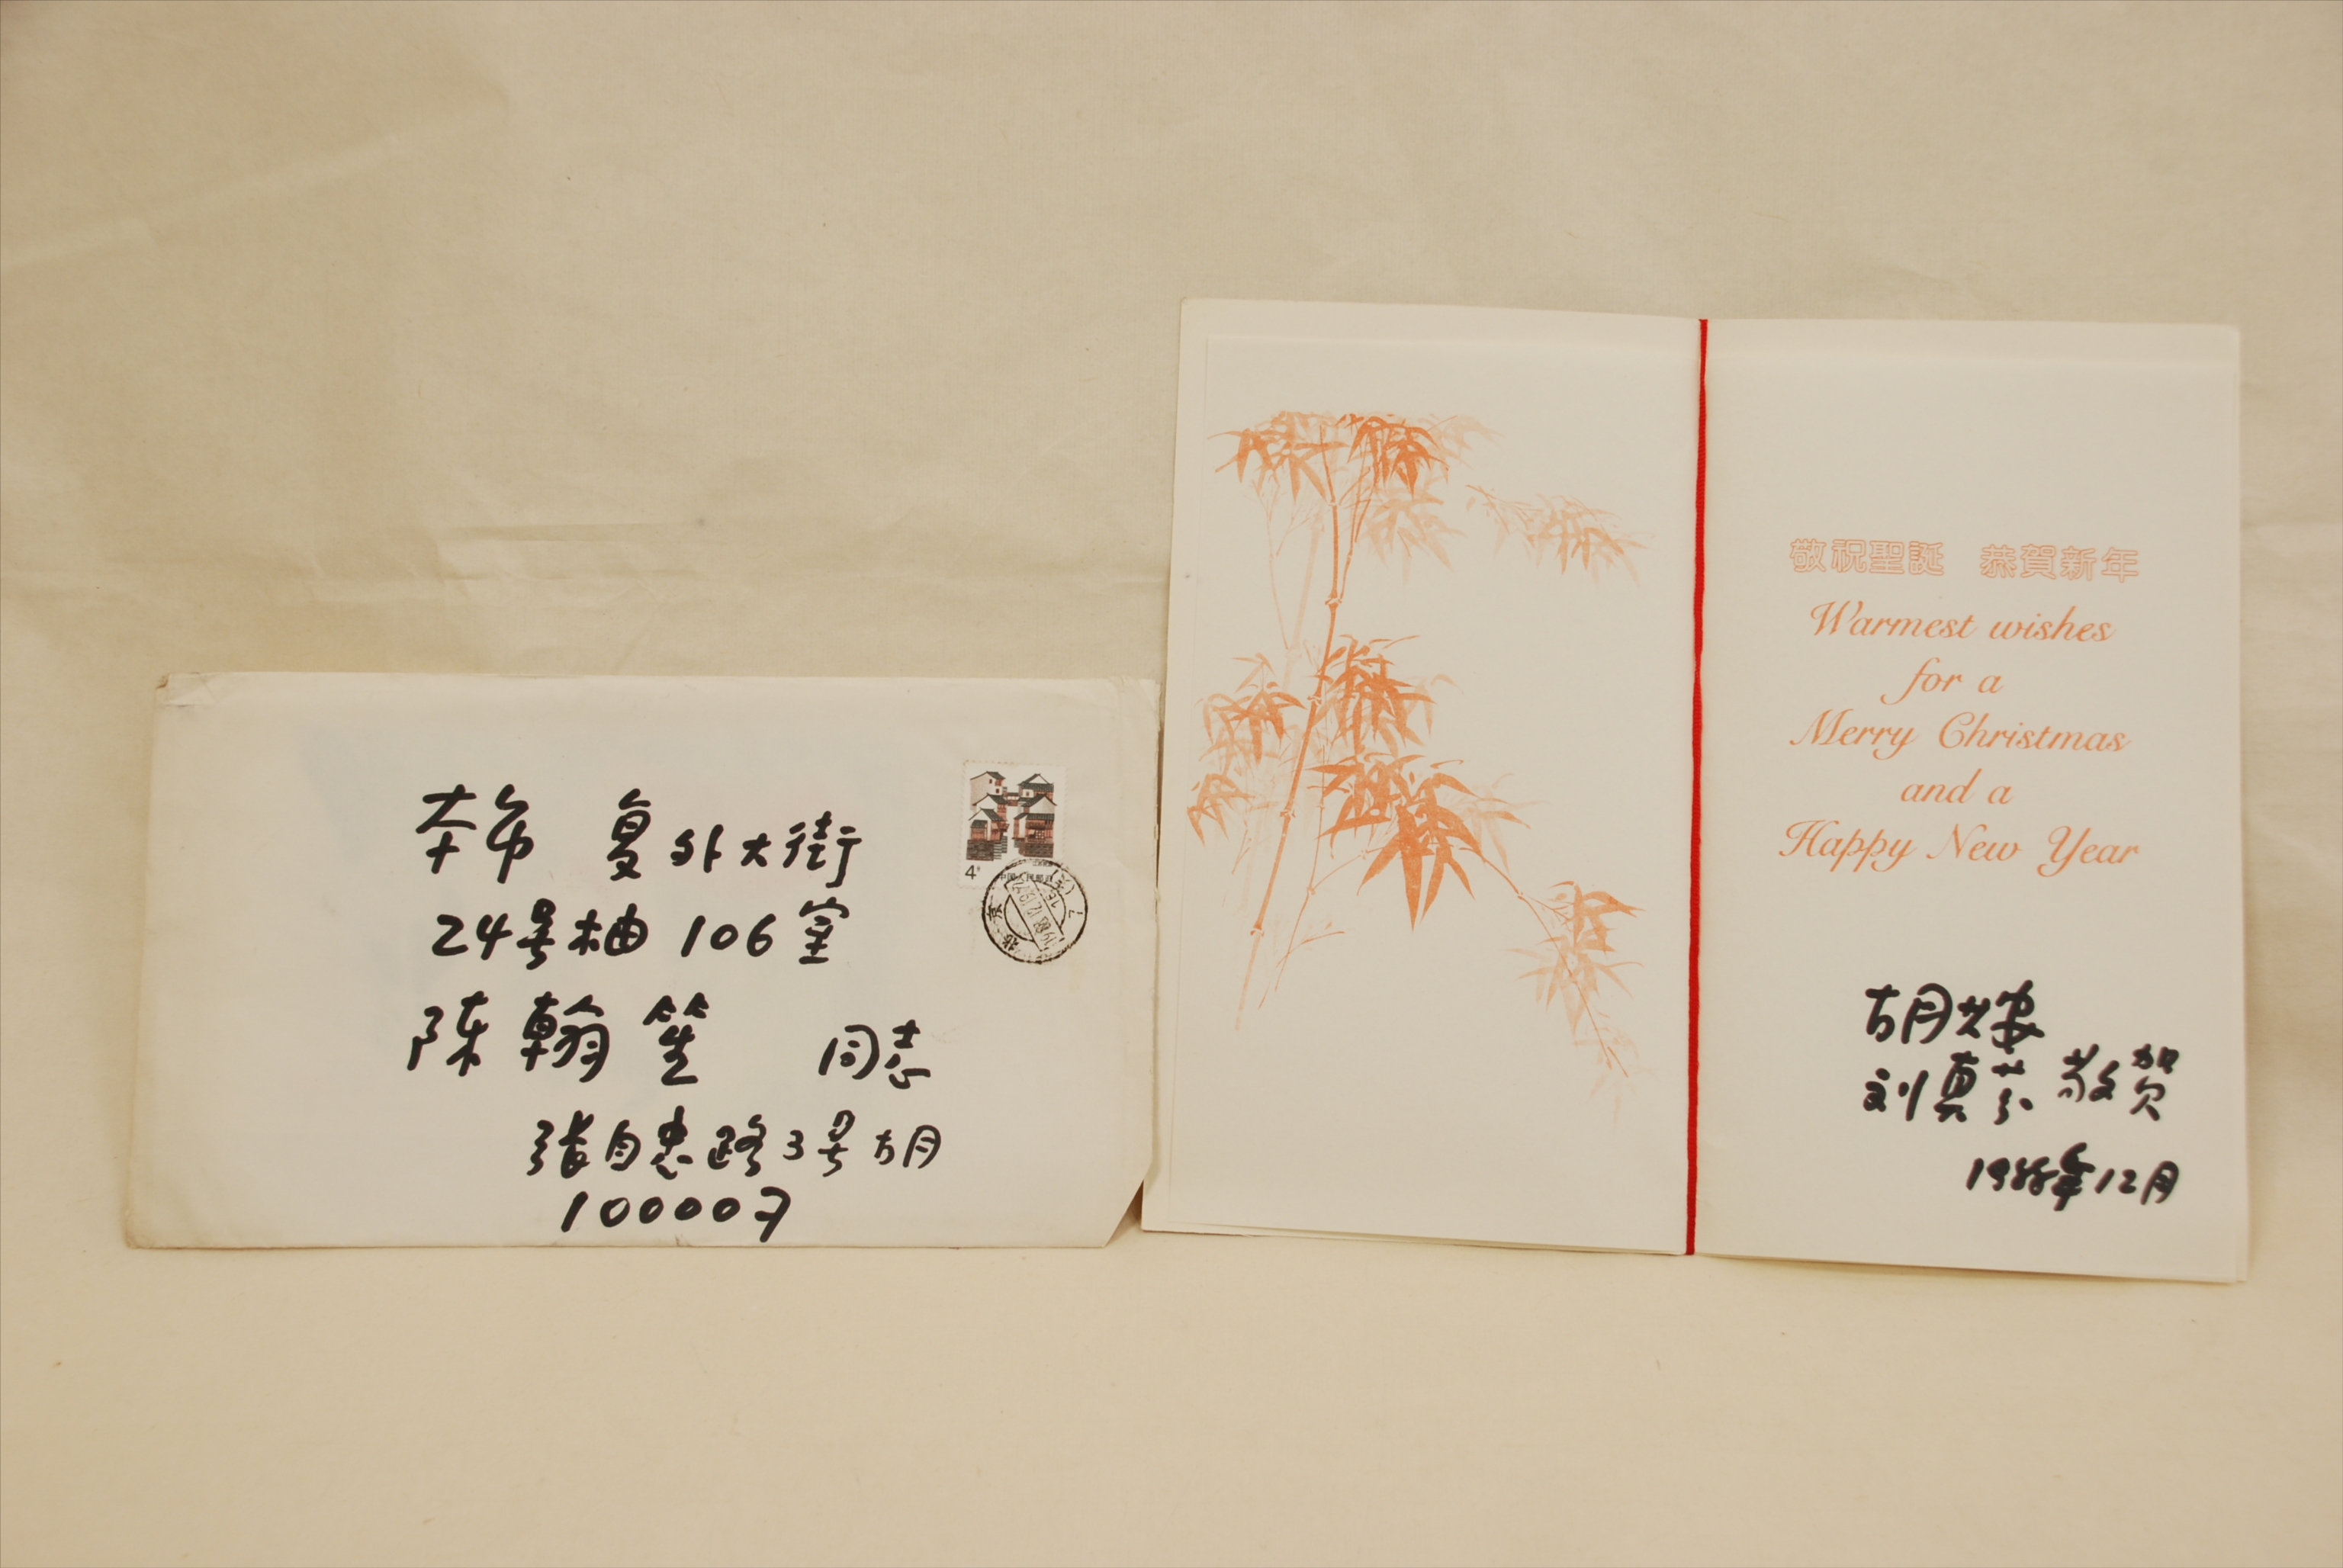 本市 复外大街
24号楼 106室
陈翰笙 同志
张自忠路3号 胡
100007
4
中国人民邮政
北京
敬祝聖誕 恭賀新年
Warmest wishes
for a
Merry Christmas
and a
Happy New Year
胡
刘真 敬贺
1988年12月